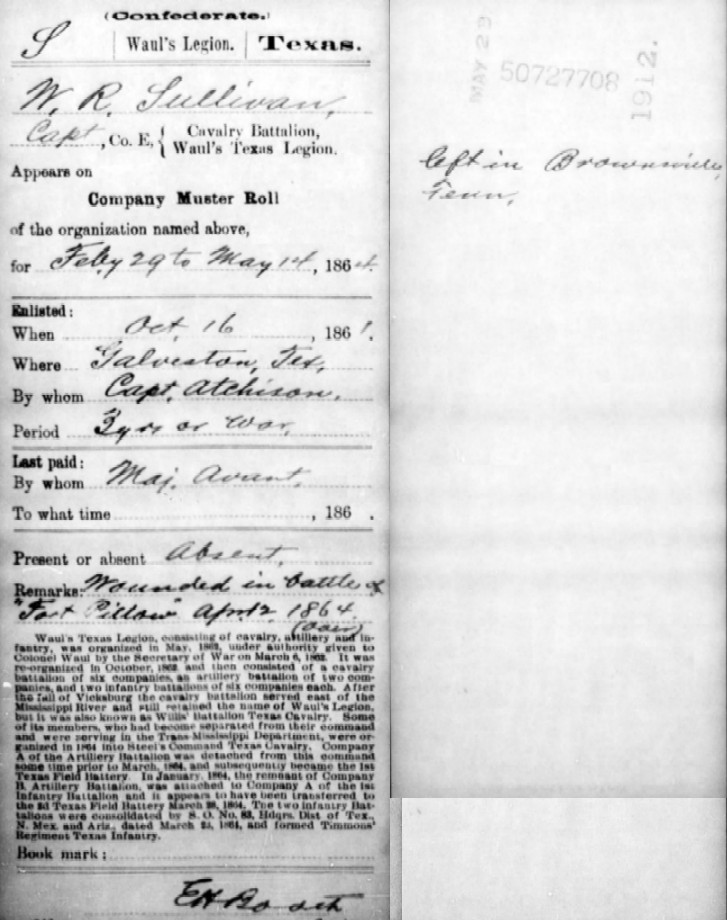 (Confederate.)
S | Waul's Legion. | Texas.
W. R. Sullivan,
Capt, Co. E, { Cavalry Battalion,
Waul's Texas Legion.
Appears on
Company Muster Roll
of the organization named above,
for Feby 29 to May 14, 1864.
Enlisted:
When Oct. 16, 1861.
Where Galveston, Tex,
By whom Capt. Atchison.
Period 3 yrs or War.
Last paid:
By whom Maj. Avant.
To what time , 186 .
Present or absent Absent,
Remarks: Wounded in battle of
"Fort Pillow" Apr. 12, 1864.
(over)
Waul's Texas Legion, consisting of cavalry, artillery and in-
fantry, was organized in May, 1862, under authority given to
Colonel Waul by the Secretary of War on March 6, 1862. It was
re-organized in October, 1862, and then consisted of a cavalry
battalion of six companies, an artillery battalion of two com-
panies, and two infantry battalions of six companies each. After
the fall of Vicksburg the cavalry battalion served east of the
Mississippi River and still retained the name of Waul's Legion,
but it was also known as Willis' Battalion Texas Cavalry. Some
of its members, who had become separated from their command
and were serving in the Trans-Mississippi Department, were or-
ganized in 1864 into Steel's Command Texas Cavalry. Company
A of the Artillery Battalion was detached from this command
some time prior to March, 1864, and subsequently became the 1st
Texas Field Battery. In January, 1864, the remnant of Company
B, Artillery Battalion, was attached to Company A of the 1st
Infantry Battalion and it appears to have been transferred to
the 2d Texas Field Battery March 28, 1864. The two infantry Bat-
talions were consolidated by S. O. No. 83, Hdqrs. Dist of Tex.,
N. Mex. and Ariz., dated March 25, 1864, and formed Timmons'
Regiment Texas Infantry.
Book mark:
MAY 29 50727708 1912.
left in Brownsville,
Tenn.